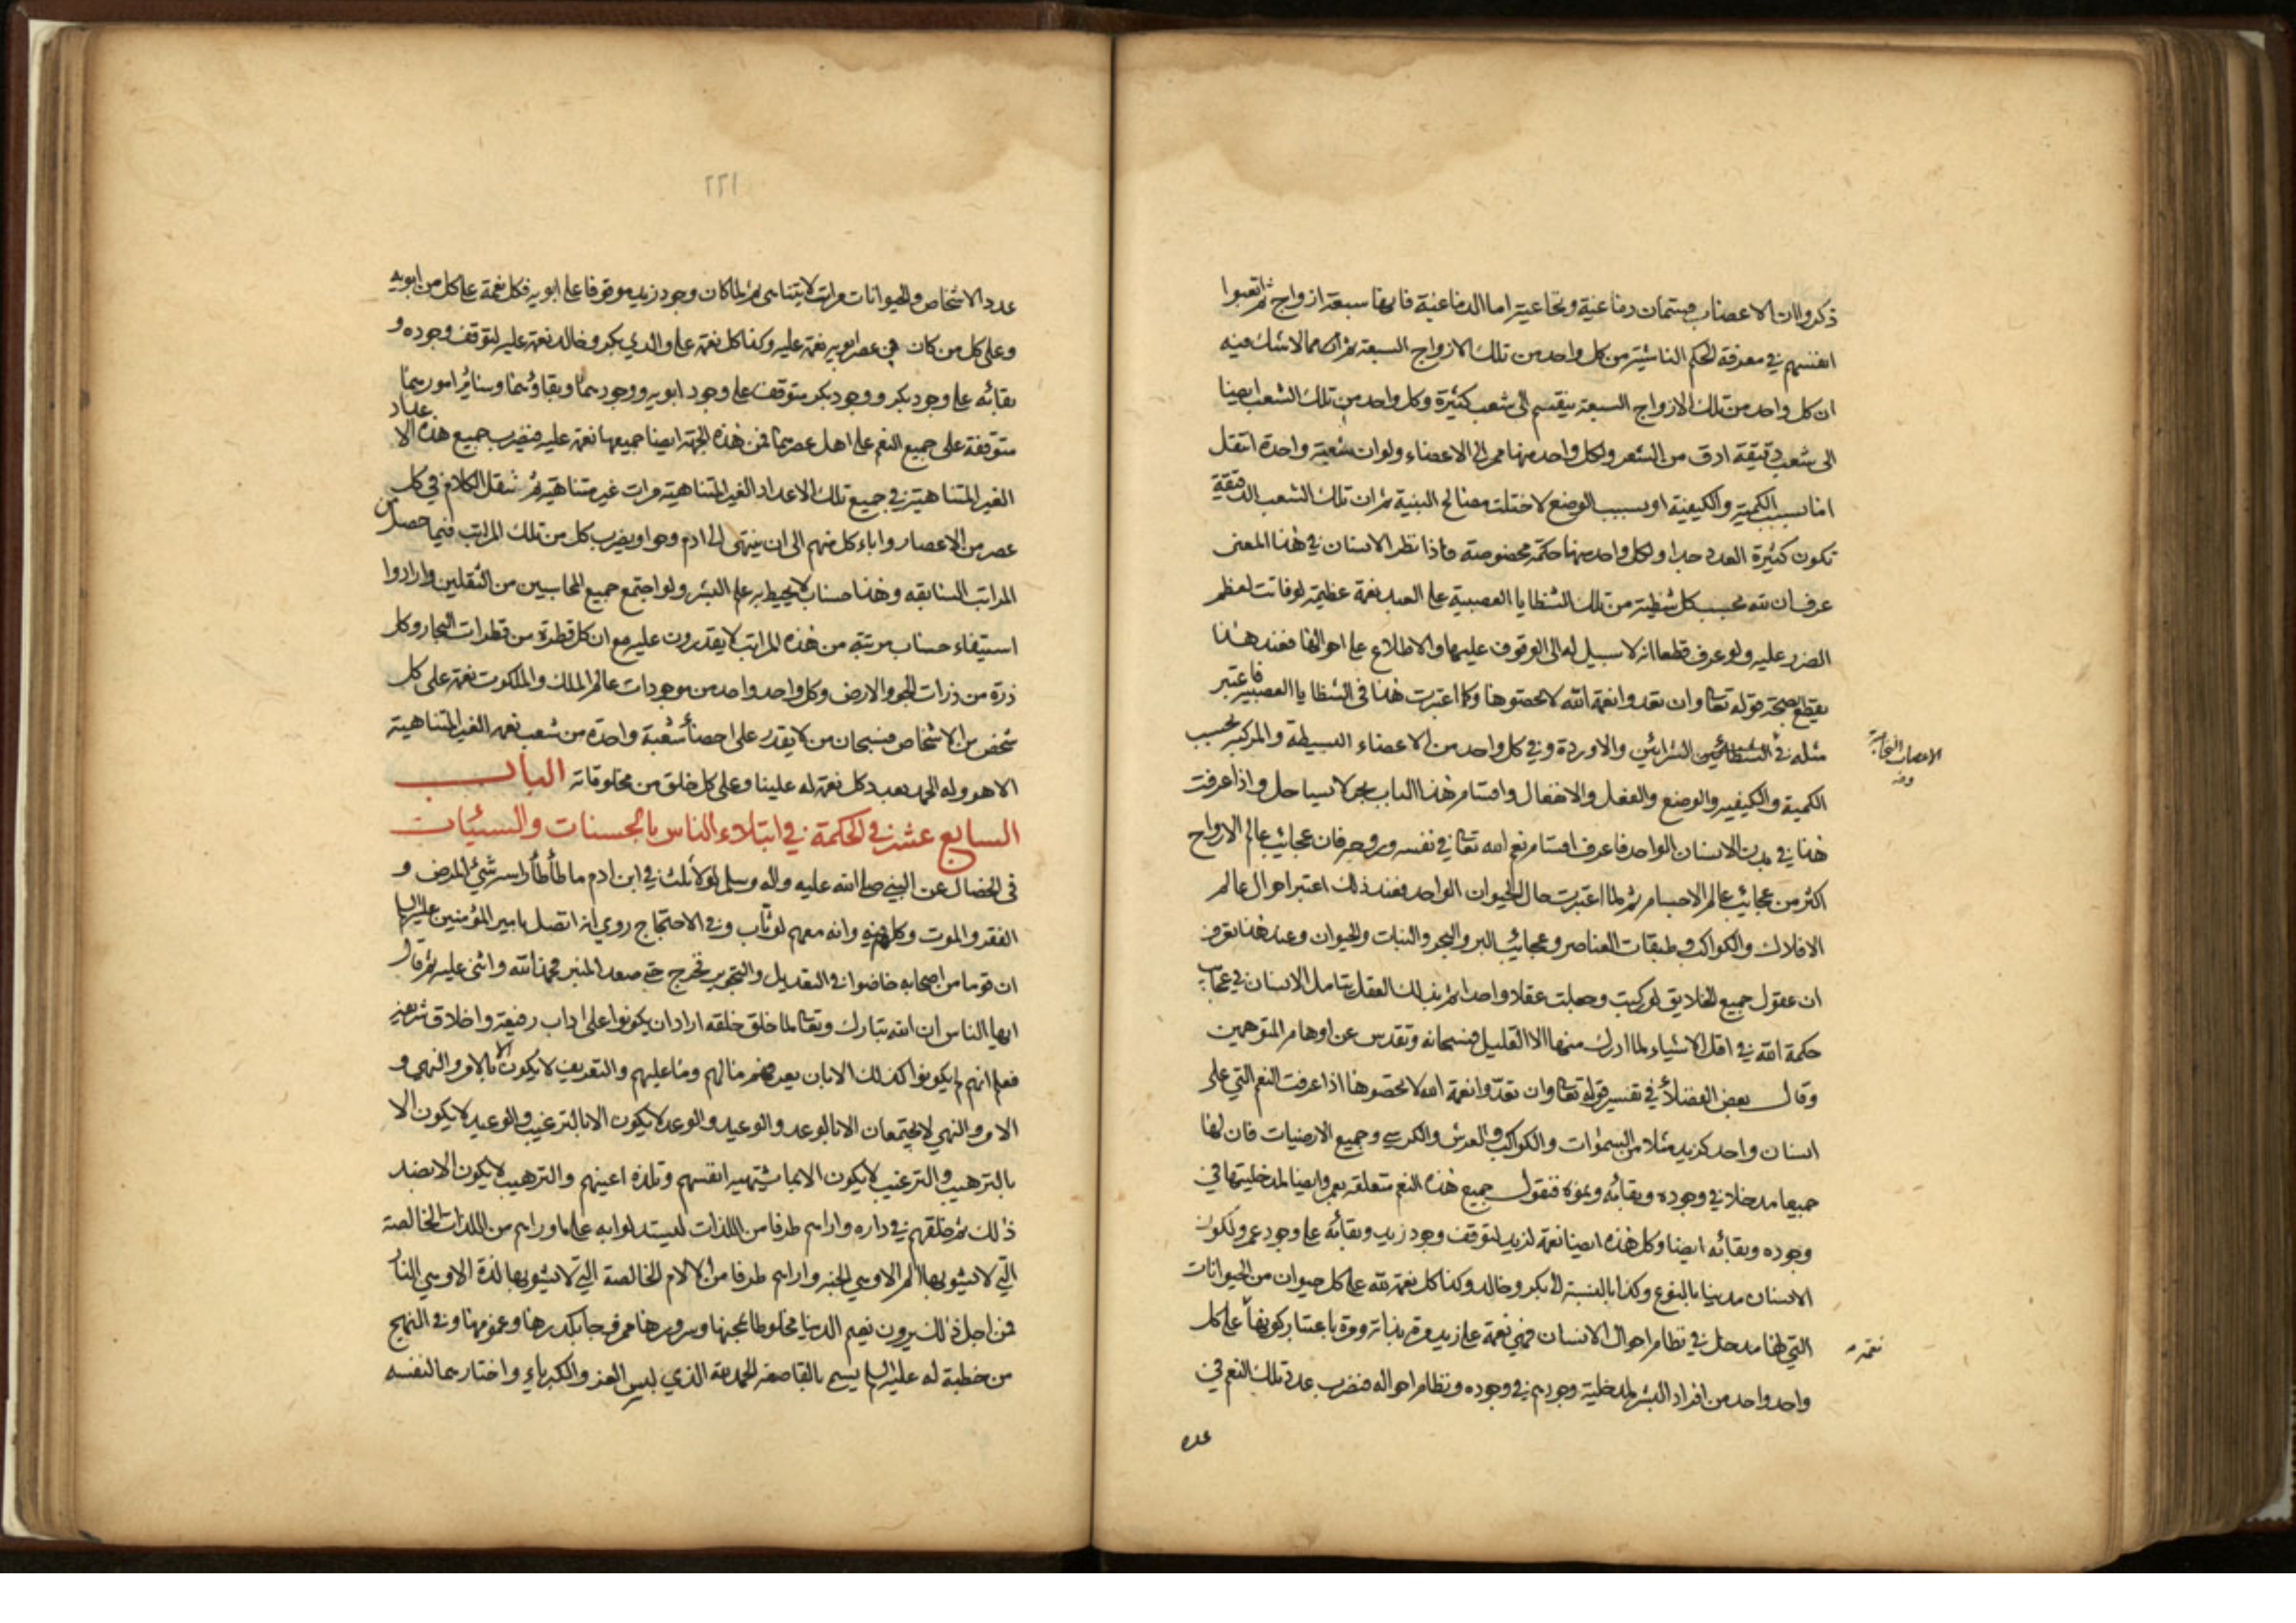 ذكروا ان الاعصاب قسمان دماغية ونخاعية اما الدماغية فانها سبعة ازواج ثم اتعبوا
انفسهم في معرفة الحكم الناشئة من كل واحد من تلك الازواج السبعة ثم ان مما لا شك فيه
ان كل واحد من تلك الازواج السبعة ينقسم الى شعب كثيرة وكل واحد من تلك الشعب ايضا
الى شعب دقيقة ادق من الشعر ولكل واحد منها ممر الى الاعضاء ولو ان شعبة واحدة انتقل
اما بسبب الكمية والكيفية او بسبب الوضع لاختلت مصالح البنية ثم ان تلك الشعب الدقيقة
تكون كثيرة العدد جدا ولكل واحد منها حكمة مخصوصة فاذا نظر الانسان في هذا المعنى
عرف ان لله بحسب كل شظية من تلك الشظايا العصبية على العبد نعمة عظيمة لو فاتت لعظم
الضرر عليه ولو عرف قطعا انه لا سبيل له الى الوقوف عليها والاطلاع على احوالها فعند هذا
يقطع بصحة قوله تعا وان تعدوا نعمة الله لا تحصوها وكما اعتبرت هذا في الشظايا العصبية فاعتبر
مثله في الشرائين والاوردة وفي كل واحد من الاعضاء البسيطة والمركبة بحسب
الكمية والكيفية والوضع والفعل والانفعال واقسام هذا الباب بحر لا ساحل واذا عرفت
هذا في بدن الانسان الواحد فاعرف اقسام نعم الله تعا في نفسه وروحه فان عجائب عالم الارواح
اكثر من عجائب عالم الاجسام ثم لما اعتبرت حال الحيوان الواحد فعند ذلك اعتبر احوال عالم
الافلاك والكواكب وطبقات العناصر وعجائب البر والبحر والنبات والحيوان وعند هذا تعرف
ان عقول جميع الخلايق لو ركبت وجعلت عقلا واحدا ثم بذلك العقل يتامل الانسان في عجائب
حكمة الله في اقل الاشياء لما ادرك منها الا القليل فسبحانه وتقدس عن اوهام المتوهمين
وقال بعض الفضلاء في تفسير قوله تعا وان تعدّوا نعمة الله لا تحصوها اذا عرفت النعم التي على
انسان واحد كزيد مثلا من السموات والكواكب والعرش والكرسي وجميع الارضيات فان لها
جميعا مدخلا في وجوده وبقائه ونموه فنقول جميع هذه النعم متعلقه بعمرو ايضا لمدخليتها في
وجوده وبقائه ايضا وكل هذه ايضا نعمة لزيد لتوقف وجود زيد وبقائه على وجود عمرو لكون
الانسان مدنيا بالنوع وكذا بالنسبة الى بكر وخالد وكذا كل نعمة لله على كل حيوان من الحيوانات
التي لها مدخل في نظام احوال الانسان فهي نعمة على زيد مرة بذاته ومرة باعتبار كونها على كل
واحد واحد من افراد البشر لمدخلية وجودهم في وجوده ونظام احواله فنضرب عدد تلك النعم في
عدد
الاعصاب النخاعية
وفي
نعمة
٢٢١
عدد الاشخاص والحيوانات مرات لا يتناهى ثم لما كان وجود زيد موقوفا على ابويه فكل نعمة على كل من ابويه
وعلى كل من كان في عصر ابويه نعمة عليه وكذا كل نعمة على والدي بكر وخالد نعمة عليه لتوقف وجوده و
بقائه على وجود بكر ووجود بكر متوقف على وجود ابويه ووجودهما وبقاؤهما وسائر امورهما
متوقفة على جميع النعم على اهل عصرهما فمن هذه الجهة ايضا جميعها نعمة عليه فيضرب جميع هذه الاعداد
الغير المتناهية في جميع تلك الاعداد الغير المتناهية مرات غير متناهية ثم ننقل الكلام في كل
عصر من الاعصار واباء كل منهم الى ان ينتهى الى ادم وحوا ويضرب كل من تلك المراتب فيما حصل من
المراتب السابقه وهذا حساب لا يحيط به علم البشر ولو اجتمع جميع المحاسبين من الثقلين وارادوا
استيفاء حساب مرتبة من هذه المراتب لا يقدرون عليه مع ان كل قطرة من قطرات البحار وكل
ذرة من ذرات الجو والارض وكل واحد واحد من موجودات عالم الملك والملكوت نعمة على كل
شخص من الاشخاص فسبحان من لا يقدر على احصاء شعبة واحدة من شعب نعمه الغير المتناهية
الا هو وله الحمد بعدد كل نعمة له علينا وعلى كل خلق من مخلوقاته الباب
السابع عشر في الحكمة في ابتلاء الناس بالحسنات والسيئات
في الخصال عن النبي صلى الله عليه واله وسلم لولا ثلث في ابن ادم ما طأطأ راسه شئ المرض و
الفقر والموت وكلهم فيه وانه معهم لوثاب وفي الاحتجاج روي انه اتصل بامير المؤمنين عليه السلم
ان قوما من اصحابه خاضوا في التعديل والتجوير فخرج حتى صعد المنبر فحمد الله واثنى عليه ثم قال
ايها الناس ان الله تبارك وتعا لما خلق خلقه اراد ان يكونوا على اداب رفيعة واخلاق شريفة
فعلم انهم لم يكونوا كذلك الا بان يعرفهم ما لهم وما عليهم والتعريف لا يكون الا بالامر والنهي و
الامر والنهي لا يجتمعان الا بالوعد والوعيد والوعد لا يكون الا بالترغيب والوعيد لا يكون الا
بالترهيب والترغيب لا يكون الا بما تشتهيه انفسهم وتلذه اعينهم والترهيب لا يكون الا بضد
ذلك ثم خلقهم في داره واراهم طرفا من اللذات ليستدلوا به على ما وراهم من اللذات الخالصة
التي لا يشوبها الم الا وهي الجنة واراهم طرفا من الالام الخالصة التي لا يشوبها لذة الا وهي النار
فمن اجل ذلك يرون نعيم الدنيا مخلوطا بمحنها وسرورها ممزوجا بكدرها وغمومها وفي النهج
من خطبة له عليه السلم يسمى بالقاصعة الحمد لله الذي لبس العز والكبرياء واختارهما لنفسه